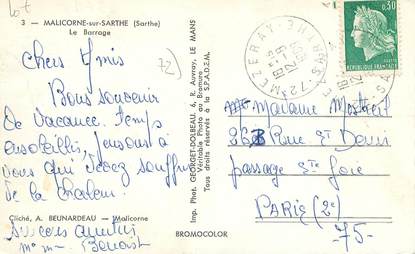 Lot
3 - MALICORNE-sur-SARTHE (Sarthe)
Le Barrage
72
Chers Amis
Bons souvenir
de vacance. Temps
ensoleillé, pensons a
vous qui devez souffrir
de la chaleur.
Cliché, A. BEUNARDEAU - Malicorne
amitiés
Benoist
BROMOCOLOR
Imp. Phot. GEORGET-DOLBEAU, 6, R. Auvray, LE MANS
Véritable Photo au Bromure
Tous droits réservés à la S.P.A.D.E.M.
MEZERAY
72 SARTHE
0,30
REPUBLIQUE FRANÇAISE
Madame
Rue St Denis
passage Ste Foie
PARIS (2e)
-75-